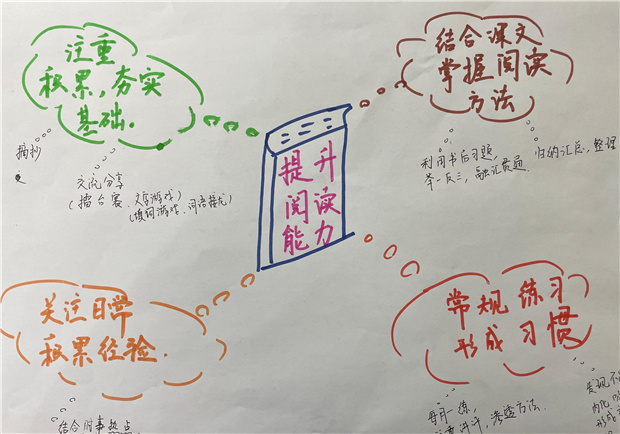 注重
积累，夯实
基础.
摘抄
交流分享
(擂台赛、文字游戏)
(填词游戏、词语接龙)
结合课文
掌握阅读
方法
利用书后习题,
举一反三，融汇贯通
归纳汇总，整理
提升
阅读
能力
关注日常
积累经验.
结合时事热点
常规练习
形成习惯
每月一练,
渗透方法.
发现不
内化
形成